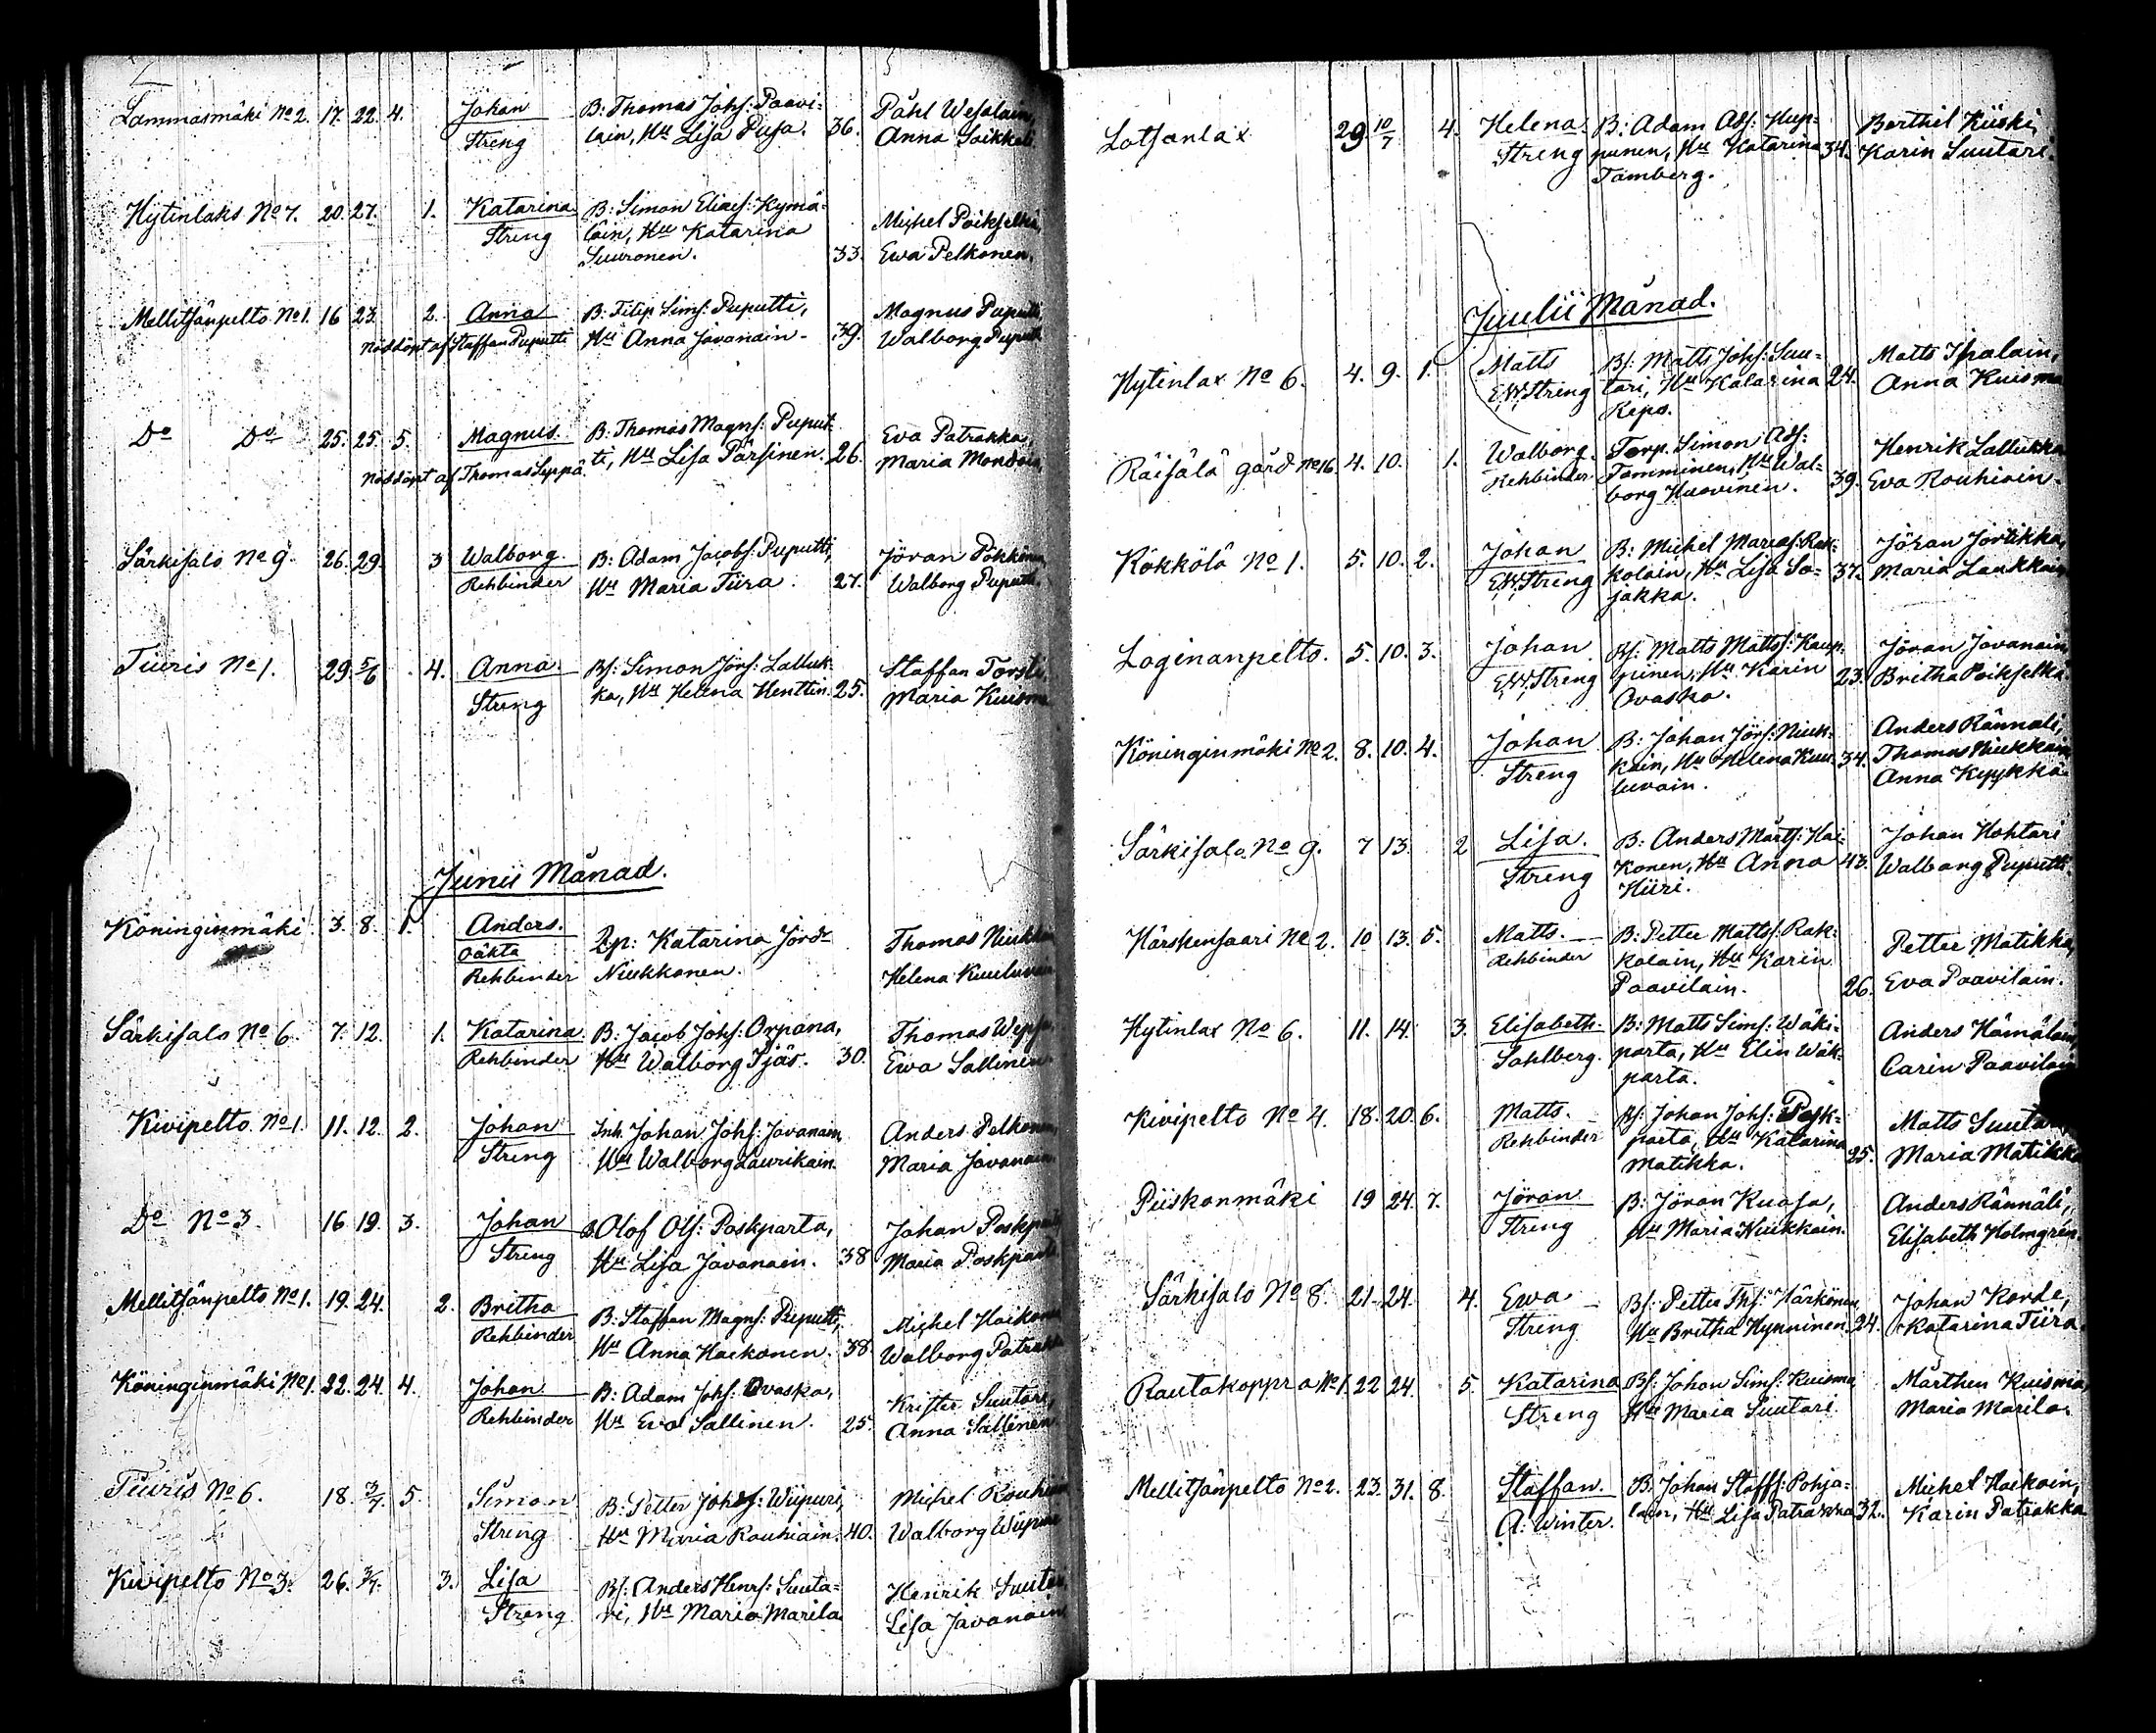 Lammasmäki No 2. 17. 22. 4. Johan B: Thomas Johs: Paavi= Påhl Wesalain,
Streng lain, Hu Lisa Pusa. 36. Anna Soikkeli
Hytinlaks No 7. 20. 27. 1. Katarina B: Simon Elias: Kymä= Michel Poikselkä,
Streng lain, Hu Katarina
Suuronen. 33. Ewa Pelkonen.
Mellitsänpelto No 1. 16 23. 2. Anna B: Filip Sims: Puputti, Magnus Puputti,
Nöddöpt af Staffan Puputti Hu Anna Javanain. 39. Walborg Puputti
Do Do 25. 25. 5. Magnus. B: Thomas Magns: Puput- Eva Patrakka
Nöddöpt af Thomas Syppä ti, Hu Lisa Pärsinen. 26. Maria Mondoin,
Särkisalo No 9. 26. 29. 3 Walborg. B: Adam Jacobs: Puputti, Jöran Pökkönen
Rehbinder Hu Maria Tiira. 27. Walborg Puputti.
Tiuris No 1. 29. 5/6 4. Anna. Bs: Simon Jörs: Lalluk- Staffan Torsti.
Streng ka, Hu Helena Henttin. 25. Maria Kuisma
Junii Månad.
Köninginmäki 3. 8. 1. Anders. Thomas Niukka
oäkta Pp: Katarina Jörd:
Rehbinder Niukkanen. Helena Kuuluvain
Särkisalo No 6. 7. 12. 1. Katarina. B: Jacob Johs: Orpana, Thomas Wepsä
Rehbinder Hu Walborg Tjäs. 30. Ewa Sallinen
Kivipelto No 1. 11. 12. 2. Johan Inh. Johan Johs: Javanain, Anders Pelkonen,
Streng Hu Walborg Laurikain. Maria Javanain.
Do No 3. 16. 19. 3. Johan B Olof Ols: Paskparta, Johan Paskparta
Streng Hu Lisa Javanain. 38 Maria Paskparta
Mellitsänpelto No 1. 19. 24. 2. Britha B: Staffan Magns: Puputti, Michel Haikonen
Rehbinder Hu Anna Haikonen. 38. Walborg Patrakka
Köninginmäki No 1. 22. 24. 4. Johan B: Adam Johs: Ovaska, Krister Suutari,
Rehbinder Hu Eva Sallinen. 25. Anna Sallinen
Tiuris No 6. 18. 3/7. 5. Simon B: Petter Johs: Wiipuri, Michel Rouhiain
Streng Hu Maria Rouhiain. 40. Walborg Wiipuri
Kivipelto No 3. 26. 3/7. 3. Lisa Bs: Anders Henrs: Suuta= Henrik Suutari
Streng ri, Hu Maria Marila Lisa Javanain
Lotsanlax 29. 10/7 4. Helena. B: Adam Ads: Hup- Berthil Kiiski,
Streng punen, Hu Katarina 34. Karin Suutari.
Tamberg.
Juulii Månad.
Hytinlax No 6. 4. 9. 1. Matts Bs: Matts Johs: Suu= Matts Ihalain,
E.W. Streng tari, Hu Katarina 24. Anna Kuisma
Repo.
Räisälä gård No 16. 4. 10. 1. Walborg. Torp. Simon Ads: Henrik Lallukka
Rehbinder Tamminen, Hu Wal= 
borg Huovinen. 39. Eva Rouhiain.
Kökkölä No 1. 5. 10. 2. Johan B: Michel Marcs: Rak- Jöran Jortikka,
E.W. Streng kolain, Hu Lisa So= 37. Maria Laukkain
jakka.
Loginanpelto. 5. 10. 3. Johan Bs: Matts Matts: Kaup- Jöran Javanain,
E.W. Streng piinen, Hu Karin 23. Britha Poikselkä
Ovaska.
Köninginmäki No 2. 8. 10. 4. Johan B: Johan Jörs: Niuk- Anders Rännäli,
Streng kain, Hu Helena Kuu- 34. Thomas Niukkain
luvain. Anna Kyykkä
Särkisalo No 9. 7 13. 2 Lisa. B: Anders Mårts: Hai- Johan Hohtari
Streng konen, Hu Anna 43. Walborg Puputti.
Hiiri.
Härskensaari No 2. 10 13. 5. Matts. B: Petter Matts: Rak- Petter Matikka,
Rehbinder kolain, Hu Karin
Paavilain. 26. Eva Paavilain.
Hytinlax No 6. 11. 14. 3. Elisabeth. B: Matts Sims: Wäki= Anders Hämäläin,
Sahlberg. parta, Hu Elin Wäk- Carin Paavilain
parta.
Kivipelto No 4. 18. 20. 6. Matts. Bs: Johan Johs: Pask- Matts Suutari
Rehbinder parta, Hu Katarina
Matikka. 25. Maria Matikka
Piiskonmäki 19 24. 7. Jöran B: Jöran Kuosa, Anders Rännäli,
Streng Hu Maria Hiukkain. Elisabeth Holmgrén.
Särkisalo No 8. 21. 24. 4. Ewa Bs: Petter Ths: Härkönen, Johan Korde,
Streng Hu Britha Hynninen. 24. Katarina Tiira.
Rautakoppra No 1. 22 24. 5. Katarina Bs: Johan Sims: Kuisma, Mårthen Kuisma,
Streng Hu Maria Suutari. Maria Marila.
Mellitsänpelto No 2. 23. 31. 8. Staffan. B: Johan Staffs: Pohja= Michel Haikain,
A: Winter. lain, Hu Lisa Patrakka 32. Karin Patrakka